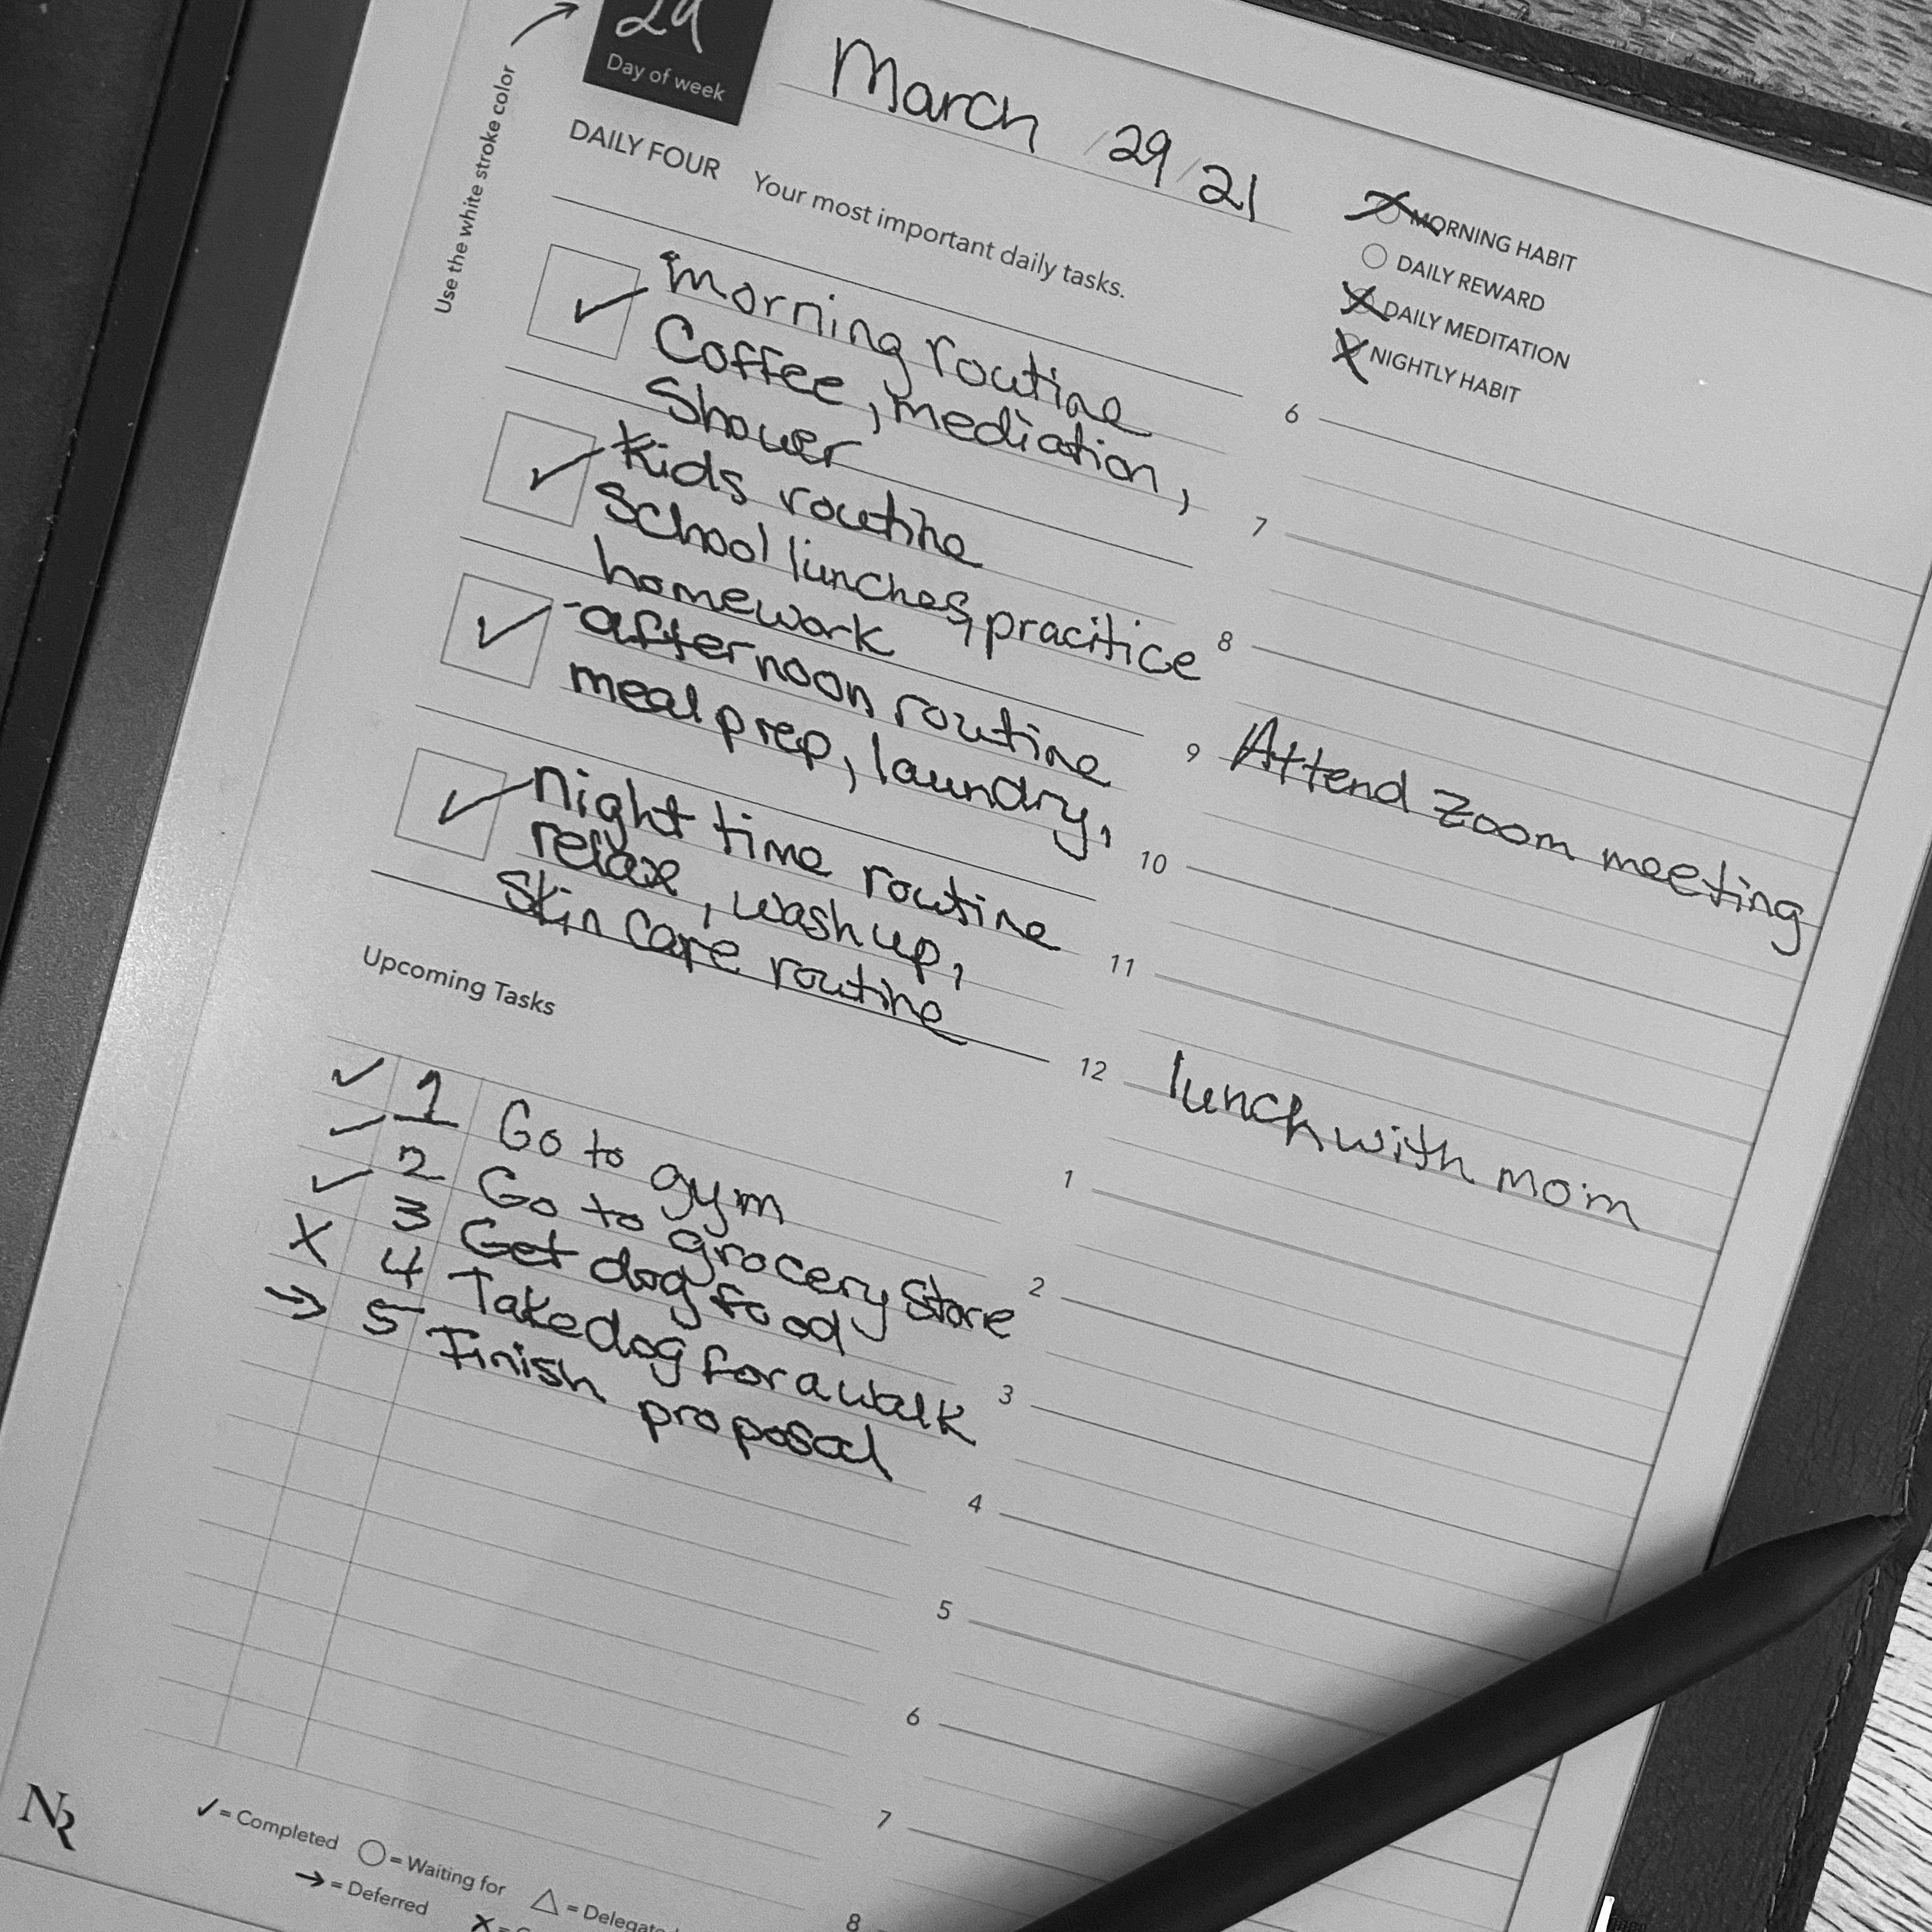 29
Day of week
Use the white stroke color
March / 29 / 21
DAILY FOUR Your most important daily tasks.
MORNING HABIT
DAILY REWARD
DAILY MEDITATION
NIGHTLY HABIT
✓ morning routine
Coffee, mediation,
Shower
✓ Kids routine
School lunches, pracitice
homework
✓ -afternoon routine
meal prep, laundry,
✓ night time routine
relax, wash up,
Skin care routine
Upcoming Tasks
✓ 1 Go to gym
✓ 2 Go to grocery Store
✓ 3 Get dog food
X 4 Take dog for a walk
→ 5 Finish
proposal
6
7
8
9 Attend Zoom meeting
10
11
12 lunch with mom
1
2
3
4
5
6
7
8
NR
✓ = Completed ○ = Waiting for △ =
→ = Deferred X =